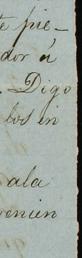 te pie-
dor á
. Digo
los in
a
ala
venien